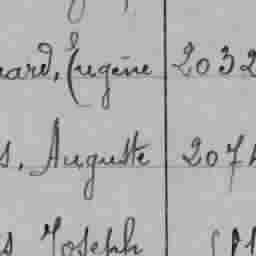 nard, Eugène 2032
s, Auguste 207
s Joseph